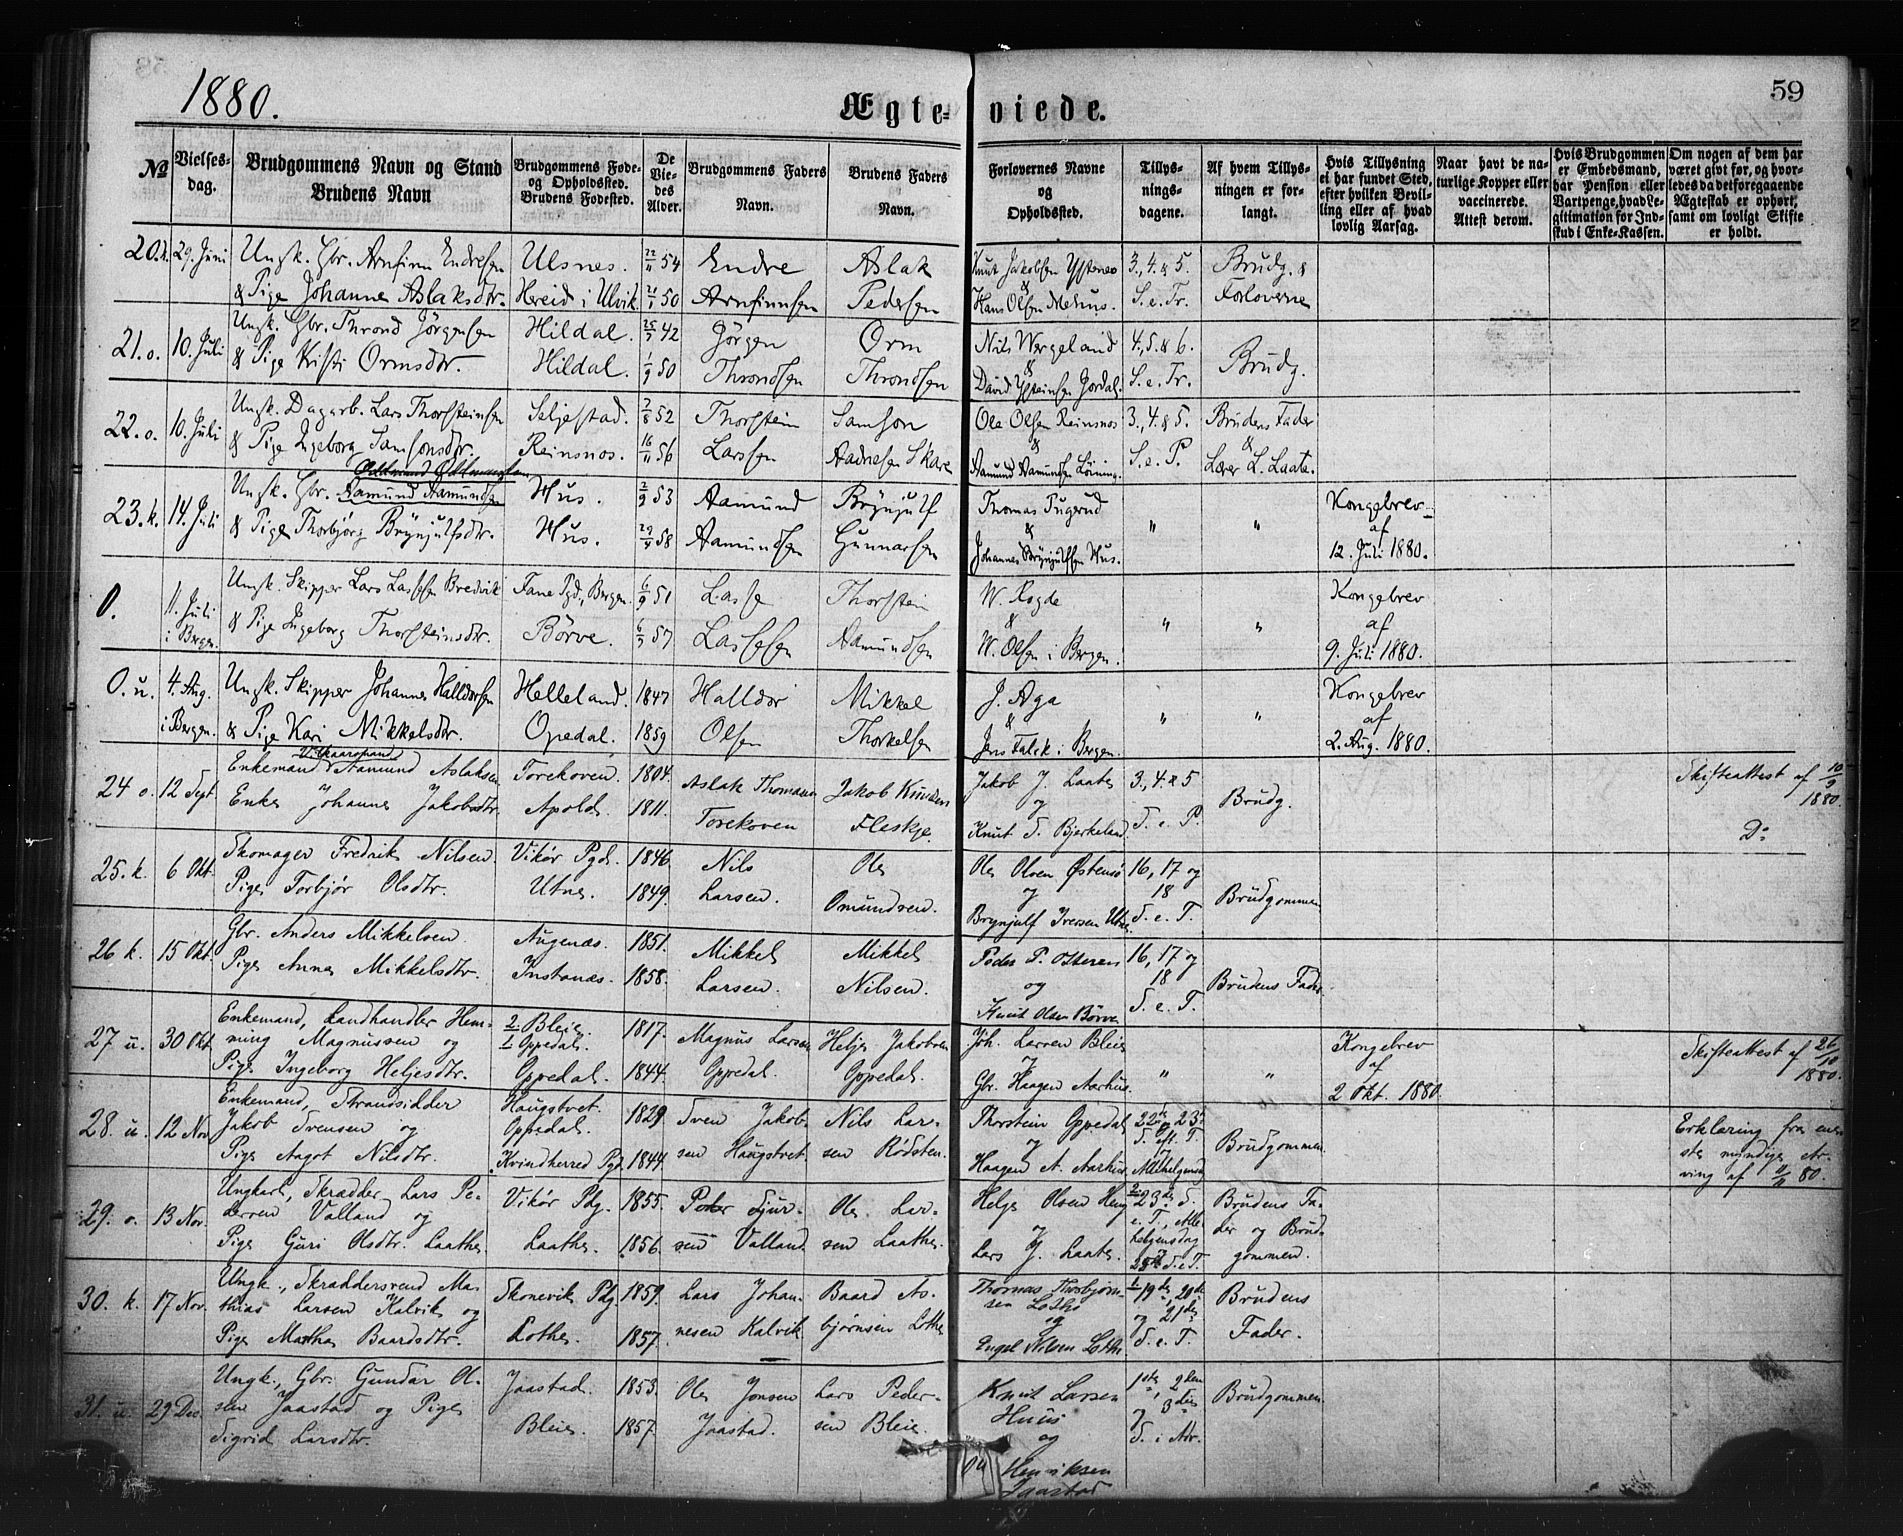 1880.
Ægteviede.
59
№
Vielsesdag.
Brudgommens Navn og Stand
Brudens Navn
Brudgommens Føde- og Opholdssted.
Brudens Fødested.
De Viedes Alder.
Brudgommens Faders Navn.
Brudens Faders Navn.
Forlovernes Navne og Opholdssted.
Tillysningsdagene.
Af hvem Tillysningen er forlangt.
Hvis Tillysning ei har fundet Sted, efter hvilken Bevilling eller af hvad lovlig Aarsag.
Naar havt de naturlige Kopper eller vaccinerede. Attest derom.
Hvis Brudgommen er Embedsmand, har Pension eller Vartpenge, hvad Legitimation for Indskud i Enke-Kassen.
Om nogen af dem har været givt før, og hvorledes da det foregaaende Ægteskab er ophørt, samt om lovligt Skifte er holdt.
20.k. 29. Juni Ungk. Gbr. Arnfinn Endresen Ulsnes. 22/11 54 Endre Aslak Knut Jakobsen Ystenes 3., 4. & 5. Brudg. &
& Pige Johanne Aslaksdtr. Hereid i Ulvik 50 Arnfinnsen Pedersen & Hans Olsen Mehus. S. e. Tr. Forloverne
21.o. 10. Juli Ungk. Gbr. Thrond Jørgensen Hildal. 42 Jørgen Orm Nils Wergeland 4., 5. & 6. Brudg.
& Pige Kristi Ormsdtr. Hildal. 1/9 50 Throndsen Throndsen & David Ysteinsen Jordal. S. e. Tr.
22.o. 10. Juli Ungk. Dagarb. Lars Thorsteinsen Seljestad. 52 Thorstein Samson Ole Olsen Reinsnos 3., 4. & 5. Brudens Fader
& Pige Ingeborg Samsonsdtr. Reinsnos. 16/11 56 Larssen Aadnesen Skare & Aamund Aamundsen Löining. S. e. P. & Lærer L. Laate.
Oddmund Oddmundsen
23.k. 14. Juli Ungk. Gbr. Aamund Aamundsen Hus. 2/9 53 Aamund Brynjulf Thomas Pugerud " " Kongebrev
& Pige Thorbjørg Brynjulfsdtr. Hus. 58 Aamundsen Gunnarsen & Johannes Brynjulfsen Hus. af 12. Juli 1880.
0. 11. Juli i Bergen. Ungk. Skipper Lars Lassesen Bredvik Fane Pgd., Bergen. 6/9 51 Lasse Thorstein W. Rogde " " Kongebrev
& Pige Ingeborg Thorsteinsdtr. Börve. 57 Lassesen Aamundsen & W. Olsen i Bergen. af 9. Juli 1880.
0.u. 4. Aug. i Bergen. Ungk. Skipper Johannes Halldorsen Helleland. 1847 Halldor Mikkel J. Aga " " Kongebrev
& Pige Kari Mikkelsdtr. Opedal. 1859 Olsen Thorkelsen & Jens Falck i Bergen. af 2. Aug. 1880.
24 o. 12 Sept. Enkemand Vilkaarsmand Aamund Aslaksen Torekoven. 1804. Aslak Thomassen Jakob Knudsen Jakob J. Laate 3., 4. & 5 Brudg. Skifteattest af 10/9 1880.
Enke Johanne Jakobsdtr. Apold. 1811. Torekoven Fleskje. og Knut S. Bjerkeland. S. e. P. Do
25. k. 6 Okt. Skomager Fredrik Nilsen. Vikör Pgd. 1846. Nils Ole Ole Olsen Østensö 16, 17 og 18 Brudgommen
Pige Torbjör Olsdtr. Utne. 1849. Larsen. Omundsen. og Brynjulf Iversen Utne. S. e. T.
26 k. 15 Okt. Gbr. Anders Mikkelsen. Augenæs. 1851. Mikkel Mikkel Peder P. 16, 17 og 18 Brudens Fader.
Pige Anna Mikkelsdtr. Instanæs. 1858. Larsen. Nilsen. og Knut Olsen Börve. S. e. T.
27 u. 30 Okt. Enkemand, Landhandler Hemming Magnussen og 2/ Bleie. 1/ Oppedal. 1817. Magnus Larsen Helje Jakobsen Joh. Larsen Bleie " " Kongebrev Skifteattest af 26/10 1880.
Pige Ingeborg Heljesdtr. Oppedal. 1844. Oppedal. Oppedal. og Gbr. Haagen Aarhus. af 2 Okt. 1880.
28. u. 12 Nov Enkemand, Strandsidder Jakob Svensen og Haugstvet. Oppedal. 1829 Sven Jakobsen Haugstvet. Nils Larsen Rödsten. Thorstein Oppedal 22de, 23de S. eft. T. Brudgommen. Erklæring fra eneste myndige Arving af 11/11 80.
Pige Aagot Nilsdtr. Kvindherred Pgd. 1844. og Haagen A. Aarhus. Allehelgensdag
29. o. 13 Nov. Ungkarl, Skrædder Lars Pedersen Valland og Vikör Pdg. 1855. Peder Sjursen Valland. Ole Larsen Laathe. Helje Olsen Heng 23de S. e. T., Allehelgensdag Brudens Fader og Brudgommen.
Pige Guri Olsdtr. Laathe. Laathe. 1856. og Lars J. Laate. S. e. T.
30. k. 17 Nov. Ungk., Skræddersvend Mathias Larsen Kalvik og Skonevik Pdg. 1859. Lars Johannesen Kalvik Baard Asbjørnsen Lothe Thomas Thorbjørnsen Lothe 19de, 20de og 21de Brudens Fader.
Pige Martha Baardsdtr. Lothe. 1857. og Engel Nilsen Lothe S. e. T.
31. u. 29 Dec. Ungk., Gbr. Gundar Olsen Jaastad og Pige Jaastad. 1853. Ole Jonsen Jaastad. Lars Pedersen Bleie. Knut Larsen Huus 1ste, 2den og 3die Brudgommen.
Sigrid Larsdtr. Bleie. 1857. og Henriksen Jaastad S. i Adv.